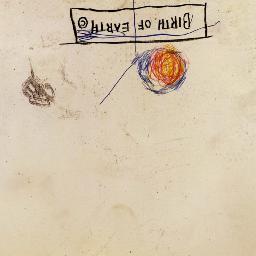 BIRTH OF EARTH ©